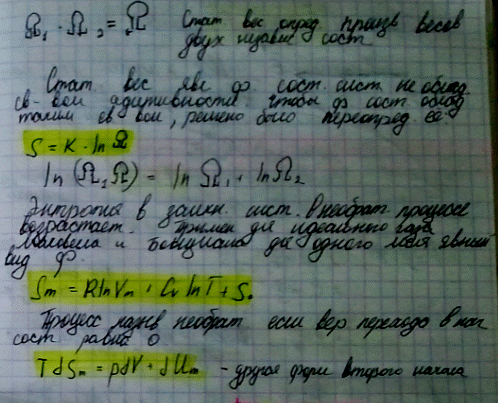 Ω₁ · Ω₂ = Ω Стат вес опред произв весов
двух независ сост
Стат. вес явл ф. сост. сист. не облад
св-вом адитивности. Чтобы ф сост облад
таким св вом, решено было переопред её.
S = K · ln Ω
ln (Ω₁ Ω) = ln Ω₁ + ln Ω₂
Энтропия в замкн. сист. в необрат процессе
возрастает. Примен для идеального газа
и Больцмана для одного моля явный
вид ф.
Sm = R ln Vm + Cv ln T + S₀
Процесс назыв необрат если вер перехода в нач
сост равна 0
T dSm = pdV + dUm - другая форм второго начала